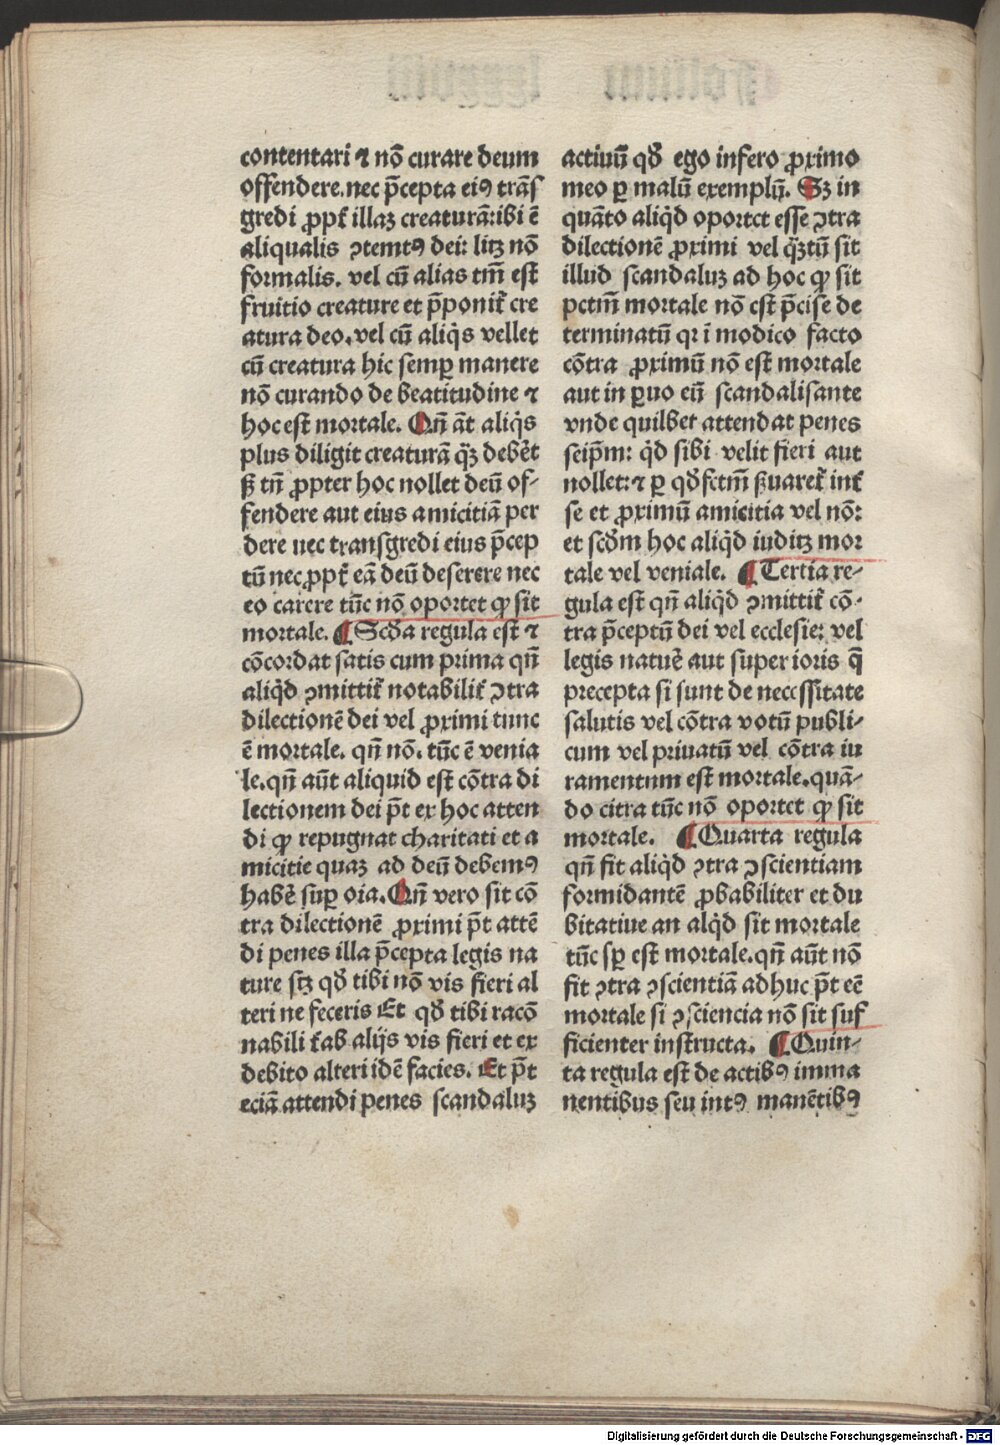 contentari ⁊ nō curare deum
offendere.nec p̄cepta eiꝰ trāſ
gredi ꝓpt̄ illaꝫ creaturā:ibi ē
aliqualis ꝯtemtꝰ dei: litꝫ nō
formalis. vel cū alias tm̄ eſt
fruitio creature et p̄ponit᷑ cre
atura deo.vel cū aliq̇s vellet
cū creatura hic semꝑ manere
nō curando de beatitudine ⁊
hoc eſt mortale. Qn̄ āt aliq̇s
plus diligit creaturā q̄ꝫ debet᷑
ſꝫ tn̄ ꝓpter hoc nollet deū of-
fendere aut eius amicitiā per
dere nec tranſgredi eius p̄cep
tū nec ꝓpt̄ eā deū deſerere nec
eo carere tūc nō oportet ꝙ ſit
mortale. ¶ Scd̄a regula eſt ⁊
cōcordat ſatis cum prima qn̄
aliq̇d ꝯmittit᷑ notabilit᷑ ꝯtra
dilectionē dei vel ꝓximi tunc
ē mortale. qn̄ nō. tūc ē venia
le.qn̄ aūt aliquid eſt cōtra di
lectionem dei p̄t ex hoc atten
di ꝙ repugnat charitati et a
micitie quaꝫ ad deū debemꝰ
habē ſuꝑ oīa. Qn̄ vero ſit cō
tra dilectionē ꝓximi p̄t attē
di penes illa p̄cepta legis na
ture ſtꝫ qd̄ tibi nō vis fieri al
teri ne feceris Et qd̄ tibi racō
nabilit᷑ ab alijs vis fieri et ex
debito alteri idē facies. Et p̄t
eciā attendi penes ſcandaluꝫ
actiuū qd̄ ego infero ꝓximo
meo ꝑ malū exemplū. Sꝫ in
quāto aliq̇d oportet eſſe ꝯtra
dilectionē ꝓximi vel q̄ꝫtū ſit
illud ſcandaluꝫ ad hoc ꝙ ſit
pctm̄ mortale nō eſt p̄ciſe de
terminatū qꝛ ī modico facto
cōtra ꝓximū nō eſt mortale
aut in ꝑuo eū ſcandaliſante
vnde quilbet attendat penes
ſeip̄m: q̇d ſibi velit fieri aut
nollet:⁊ ꝑ qd̄ fctm̄ ſꝫuaret᷑ int᷑
ſe et ꝓximū amicitia vel nō:
et ſcd̄m hoc aliq̇d iuditꝫ mor
tale vel veniale. ¶ Tertia re-
gula eſt qn̄ aliq̇d ꝯmittit᷑ cō-
tra p̄ceptū dei vel eccleſie: vel
legis natuē aut ſuperioris q̄
precepta ſi ſunt de neceſſitate
ſalutis vel cōtra votū publi-
cum vel priuatū vel cōtra iu
ramentum eſt mortale.quā-
do citra tūc nō oportet ꝙ ſit
mortale. ¶ Quarta regula
qn̄ fit aliq̇d ꝯtra ꝯſcientiam
formidantē ꝓbabiliter et du
bitatiue an alq̇d ſit mortale
tūc ſꝑ eſt mortale.qn̄ aūt nō
fit ꝯtra ꝯſcientiā adhuc p̄t eē
mortale ſi ꝯſciencia nō ſit ſuf
ficienter inſtructa. ¶ Quin-
ta regula eſt de actibꝰ imma
nentibus ſeu intꝰ manētibꝰ
Digitalisierung gefördert durch die Deutsche Forschungsgemeinschaft - DFG